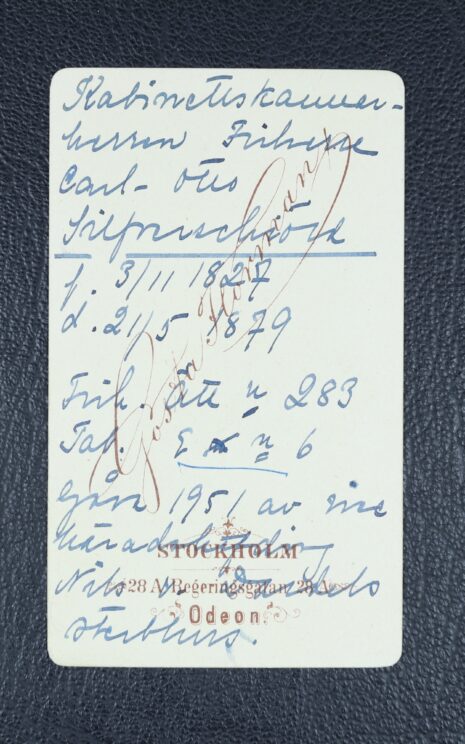 Kabinettskammer-
herren Friherre
Carl-Otto
Silfverschiöld
f. 3/11 1827
d. 21/5 1879
Frih. Ätt n 283
Tab. E n 6
Gåva 1951 av
häradshövding
Nils
sterbhus.
Gösta Florman
STOCKHOLM
28 A Regeringsgatan 28 A
Odeon.